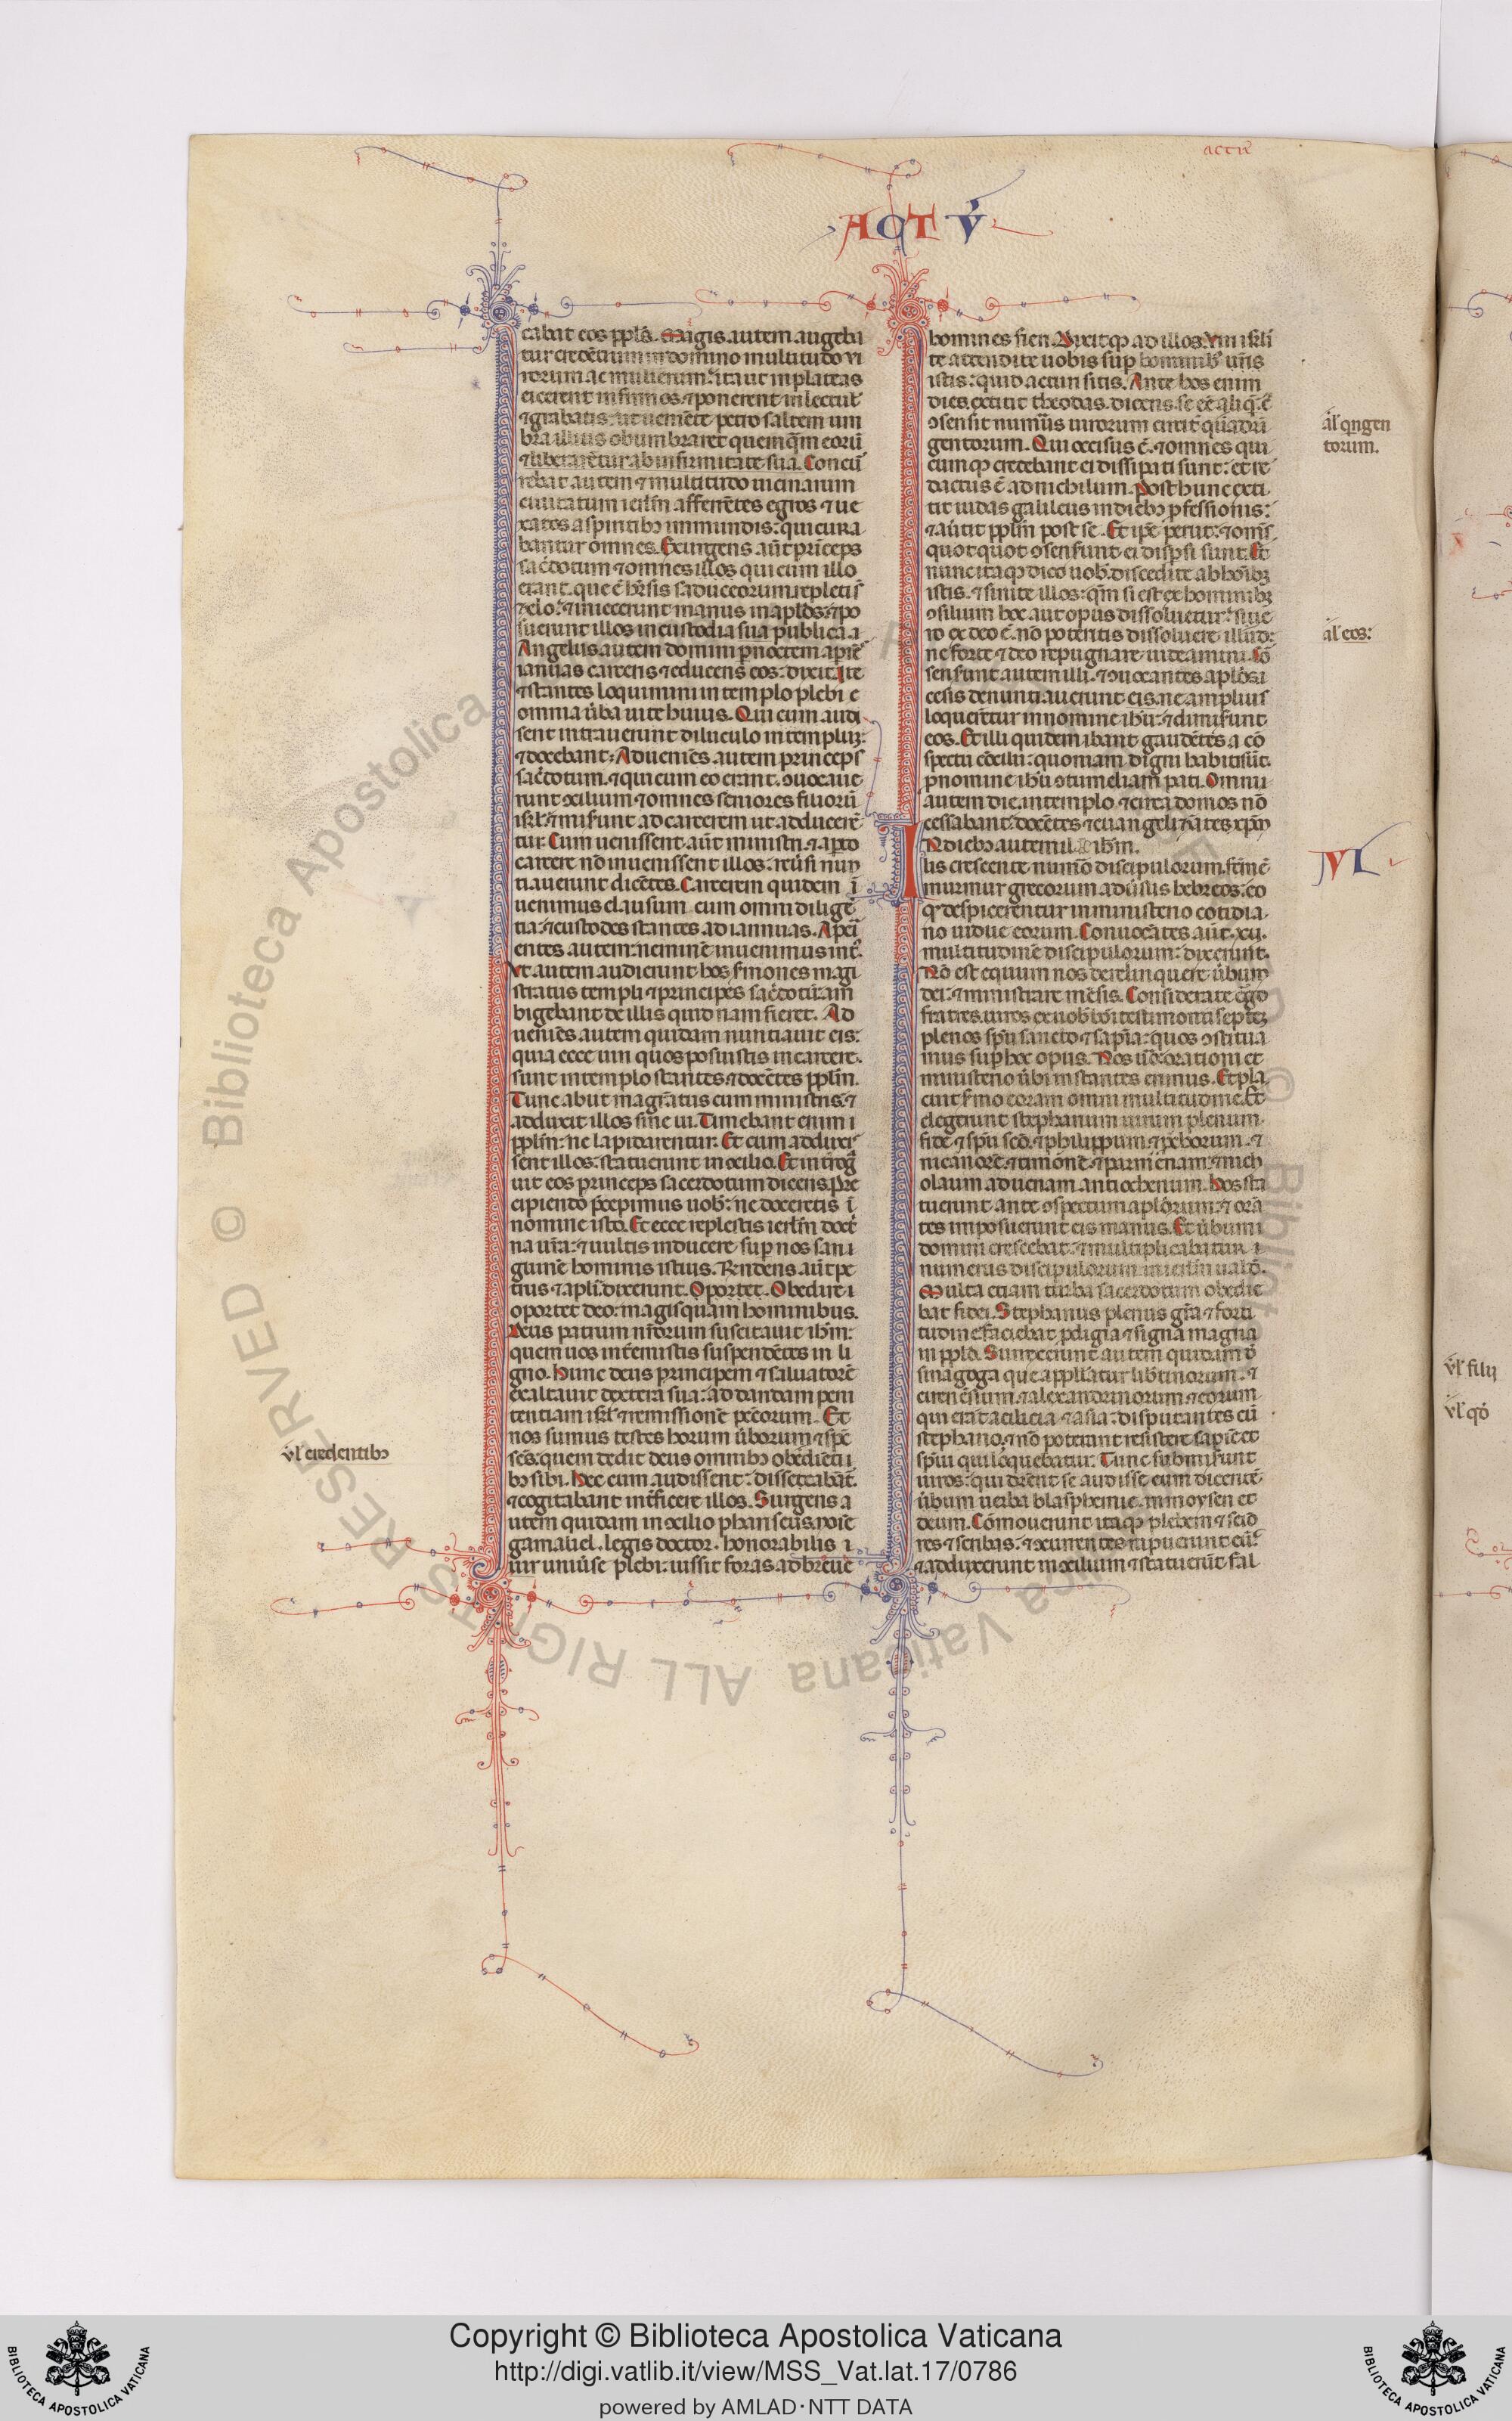 actuū
ACTV̄
cabat eos ppl̄s. Magis autem augeba
tur credētium in domino multitudo vi
rorum ac mulierum: ita ut in plateas
eicerent infirmos ⁊ ponerent in lectul᷒
⁊ grabatis: ut ueniēte petro saltem um
bra illius obumbraret quemq̄m eorū
⁊ liberarētur ab infirmitate sua. Concu
rebat autem ⁊ multitudo uicinarum
ciuitatum ierlm̄ afferētes egros ⁊ ue
xatos a spiritibꝫ immundis: qui cura
bantur omnes. Exurgens aūt prīceps
sac̄dotum ⁊ omnes illos qui cum illo
erant. que ē hr̄sis saduceorum. repleti s̄
zelo: ⁊ iniecerunt manus in apl̄os: ⁊ po
suerunt illos in custodia sua publica. ı
Angelus autem domini p noctem apiēs
ianuas carceris ⁊ educens eos: dixit. Ite
⁊ stantes loquimini in templo plebi e
omnia ūba uite huius. Qui cum audi
sent intrauerunt diluculo in templuꝫ:
⁊ docebant: Adueniēs autem princeps
sac̄dotum. ⁊ qui cum eo erant. ↄuocaue
runt ↄcilium ⁊ omnes seniores filiorū
isrl̄: ⁊ miserunt ad carcerem ut adducerē
tur. Cum uenissent aūt ministri. ⁊ apto
carcere nō inuenissent illos: reūsi nun
tiauerunt dicētes. Carcerem quidem ī
uenimus clausum cum omni diligē
tia: ⁊ custodes stantes ad iannuas. Aperi
entes autem: neminē inuenimus int᷒.
Vt autem audierunt hos s̄mones magi
stratus templi ⁊ principes sac̄dotū: am
bigebant de illis quid nam fieret. Ad
ueniēs autem quidam nuntiauit eis:
quia ecce uiri quos posuistis in carcere.
sunt in templo stantes ⁊ docētes ppl̄m.
Tunc abiit magr̄atus cum ministris: ⁊
adduxit illos sine ui. Timebant enim ı
ppl̄m: ne lapidarentur. Et cum adduxi
sent illos: statuerunt in ↄcilio. Et introg̊
uit eos princeps sacerdotum dicens. Pre
cipiendo p̄cepimus uob̄: ne doceretis ī
nomine isto. Et ecce replestis ierlm̄ doct̄
na ur̄a: ⁊ uultis inducere sup nos san ı
guinē hominis istius. Rn̄dens aūt pe
trus ⁊ apl̄i. dixerunt. Oportet. Obedire ı
oportet deo: magis quam hominibus.
Deus patrum nr̄orum suscitauit ihm̄:
quem uos int̄emistis suspendētes in li
gno. Hunc deus principem ⁊ saluatorē
exaltauit dextera sua: ad dandam peni
tentiam isrl̄: ⁊ remissionē pcc̄orum. Et
nos sumus testes horum ūborum ⁊ spē
scs̄: quem dedit deus omnibꝫ obediēti ı
bꝫ sibi. Hec cum audissent: dissecabāt.
⁊ cogitabant int̄ficere illos. Surgens a
utem quidam in ↄcilio phariseus. noīe
gamaliel. legis doctor. honorabilis ı
uir uniūse plebi: iussit foras ad breue
vl̄ credentibꝫ
homines fieri. Dixitqꝫ ad illos. Viri isrl̄i
te attendite uobis sup hominibꝫ ur̄is
istis: quid acturi sitis. Ante hos enim
dies. extitit theodas. dicens se eē aliq̄: ē
ↄsensit numūs uirorum circit̄ quadrī
gentorum. Qui occisus ē: ⁊ omnes qui
cumqꝫ credebant ei dissipati sunt: et re
dactus ē ad nichilum. Post hunc exti
tit iudas galileus in diebꝫ ꝓfessionis:
⁊ aūtit ppl̄m post se. Et ipē periit: ⁊ om̄s
quotquot ↄsenserunt ei disp̄si sunt. Et
nunc itaqꝫ dico uob̄. discedite ab hoībꝫ
istis. ⁊ sinite illos: qm̄ si est ex hominibꝫ
ↄsilium hoc aut opus dissoluetur: si ue
ro ex deo ē. nō potēritis dissoluere illud:
ne forte ⁊ deo repugnare uideamini. Cō
senserunt autem illi. ⁊ ↄuocantes apl̄os ı
cesis denuntiauerunt eis. ne amplius
loquerētur in nomine ihū: ⁊ dimiserunt
eos. Et illi quidem ibant gaudētes a cō
spectu cōcilii: quoniam digni habiti sūt.
ꝓ nomine ihū ↄtumeliam pati. Omni
autem die. in templo ⁊ circa domos nō
cessabant. docētes ⁊ euangelizātes xpm̄
IN diebꝫ autem il ihm̄.
lis crescente num̄o discipulorum. f̄tm ē
murmur grecorum adūsus hebreos: eo
qꝫ despicerentur in ministerio cotidia.
no uidue eorum. Conuocātes aūt .xii.
multitudinē discipulorum: dixerunt.
Nō est equum nos derelinquere ūbum
dei: ⁊ ministrare mēsis. Considerate eg̊o
fratres. uiros ex uob̄ boni testimonii septeꝫ
plenos spū sancto ⁊ sapīa: quos ↄstitua
mus sup hoc opus. Nos ūo: orationi et
ministerio ūbi instantes erimus. Et pla
cuit s̄mo coram omni multitudine. Et
elegerunt stephanum uirum plenum.
fide ⁊ spū sc̄o. ⁊ philippum ⁊ ꝓchorum. ⁊
nicanorē. ⁊ timonē. ⁊ parmenam. ⁊ nich
olaum aduenam antiochenum. Hos sta
tuerunt ante ↄspectum apl̄orum: ⁊ orā
tes imposuerunt eis manus. Et ūbum ı
domini crescebat: ⁊ multiplicabatur. ı
numerus discipulorum in ierlm̄ ualđ.
Multa etiam turba sacerdotum obedie
bat fidei. Stephanus plenus gr̄a ⁊ forti
tudine: faciebat ꝓdigia ⁊ signa magna
in ppl̄o. Surrexerunt autem quidam đ
sinagoga que appll̄atur lib̄tinorum. ⁊
cirenēsium. ⁊ alexandrinorum ⁊ eorum
qui erāt a cilicia ⁊ asia: disputantes cū
stephano: ⁊ nō poterant resistere sapīe et
spūi qui loquebatur. Tunc submiserunt
uiros: qui dic̄ent se audisse eum dicentē
ūbum uerba blasphemie. in moysen et
deum. Cōmouerunt itaqꝫ plebem ⁊ seīo
res ⁊ scribas: ⁊ ↄcurrentes rapuerunt eū:
⁊ adduxerunt in ↄcilium ⁊ statuerūt fal
al̄ qngen
torum.
al̄ eos:
VI
vl̄ filij
vl̄ qđ
© Biblioteca Apostolica Vaticana ALL RIGHTS RESERVED
Copyright © Biblioteca Apostolica Vaticana
http://digi.vatlib.it/view/MSS_Vat.lat.17/0786
powered by AMLAD·NTT DATA
BIBLIOTECA APOSTOLICA VATICANA
BIBLIOTECA APOSTOLICA VATICANA